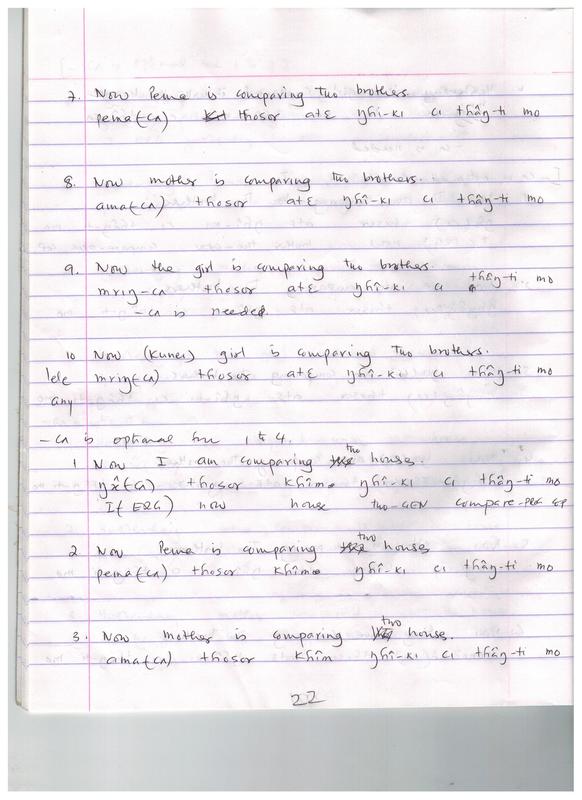 7. Now Pema is comparing two brothers.
pema(-CΛ) thosor atɛ ŋhi-kı cı thâŋ-ti mo
8. Now mother is comparing two brothers.
ama(-CΛ) thosor atɛ ŋhî-kı cı thâŋ-ti mo
9. Now the girl is comparing two brothers
mrıŋ-CΛ thosor atɛ ŋhî-kı cı thâŋ-ti mo
-CΛ is needed.
10 Now (Kunes) girl is comparing two brothers.
lele mrıŋ(-CΛ) thosor atɛ ŋhî-kı cı thâŋ-ti mo
any
-CΛ is optional for 1 to 4.
1 Now I am comparing two houses.
ŋx̂(-CΛ) thosor khîm ŋhî-kı cı thâŋ-ti mo
I(-ERG) now house two-GEN compare-PRG COP
2 Now Pema is comparing two houses
pema(-CΛ) thosor khîm ŋhî-kı cı thâŋ-ti mo
3. Now mother is comparing two houses.
ama(-CΛ) thosor khîm ŋhî-kı cı thâŋ-ti mo
22